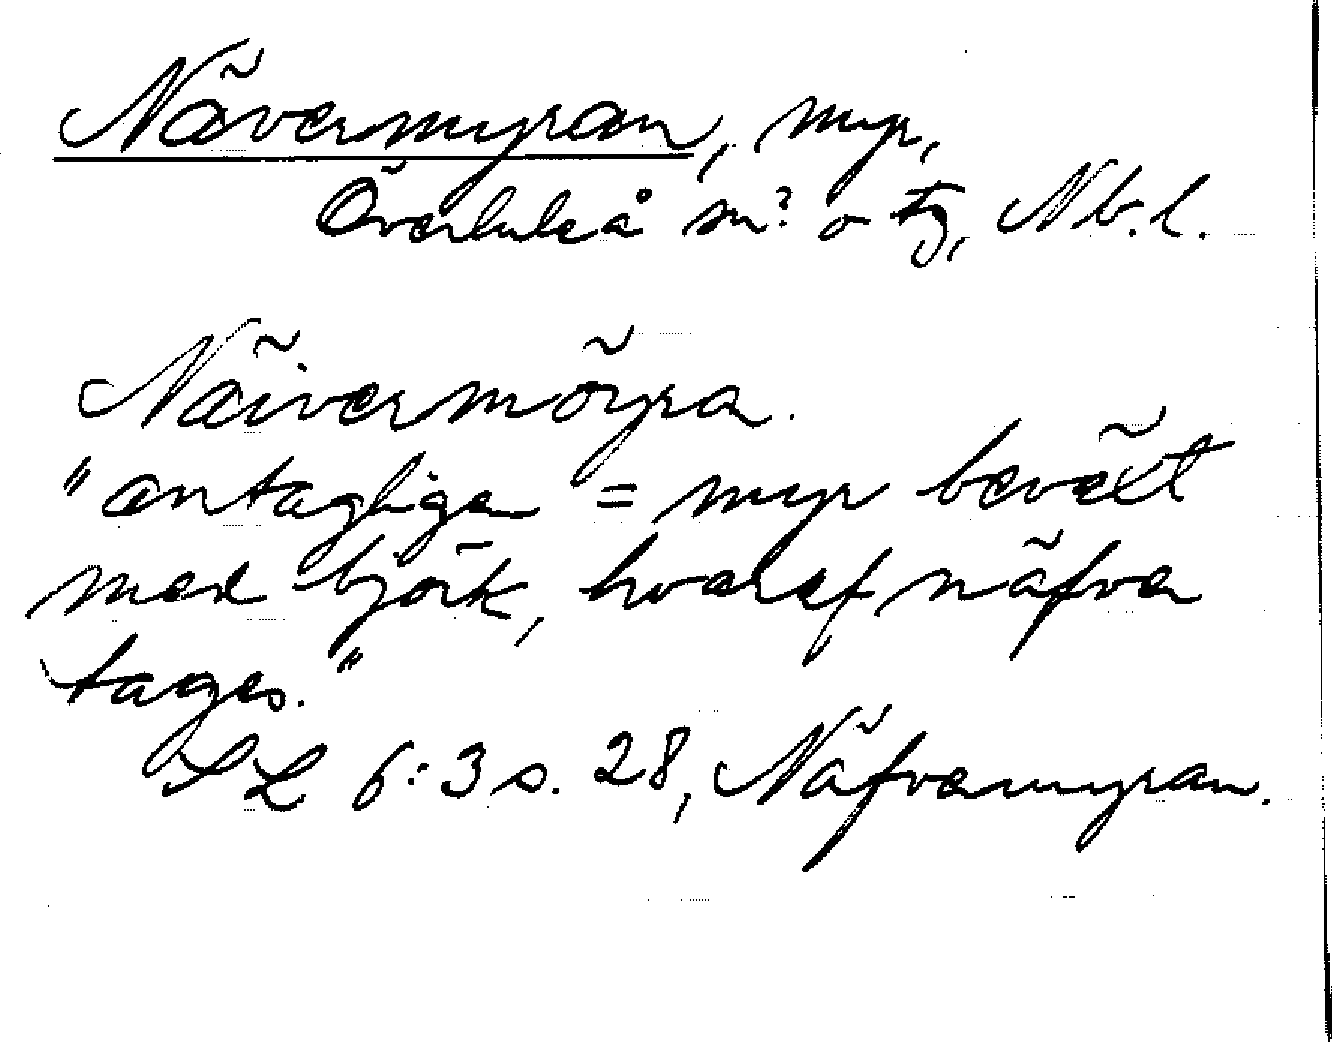 Nävermyran, myr,
Överluleå sn? o tg, Nb.l.
Näivermöyra.
"antagligen = myr beväxt
med björk, hvaraf näfver
tages."
SL 6:3 s. 28, Näfvermyran.